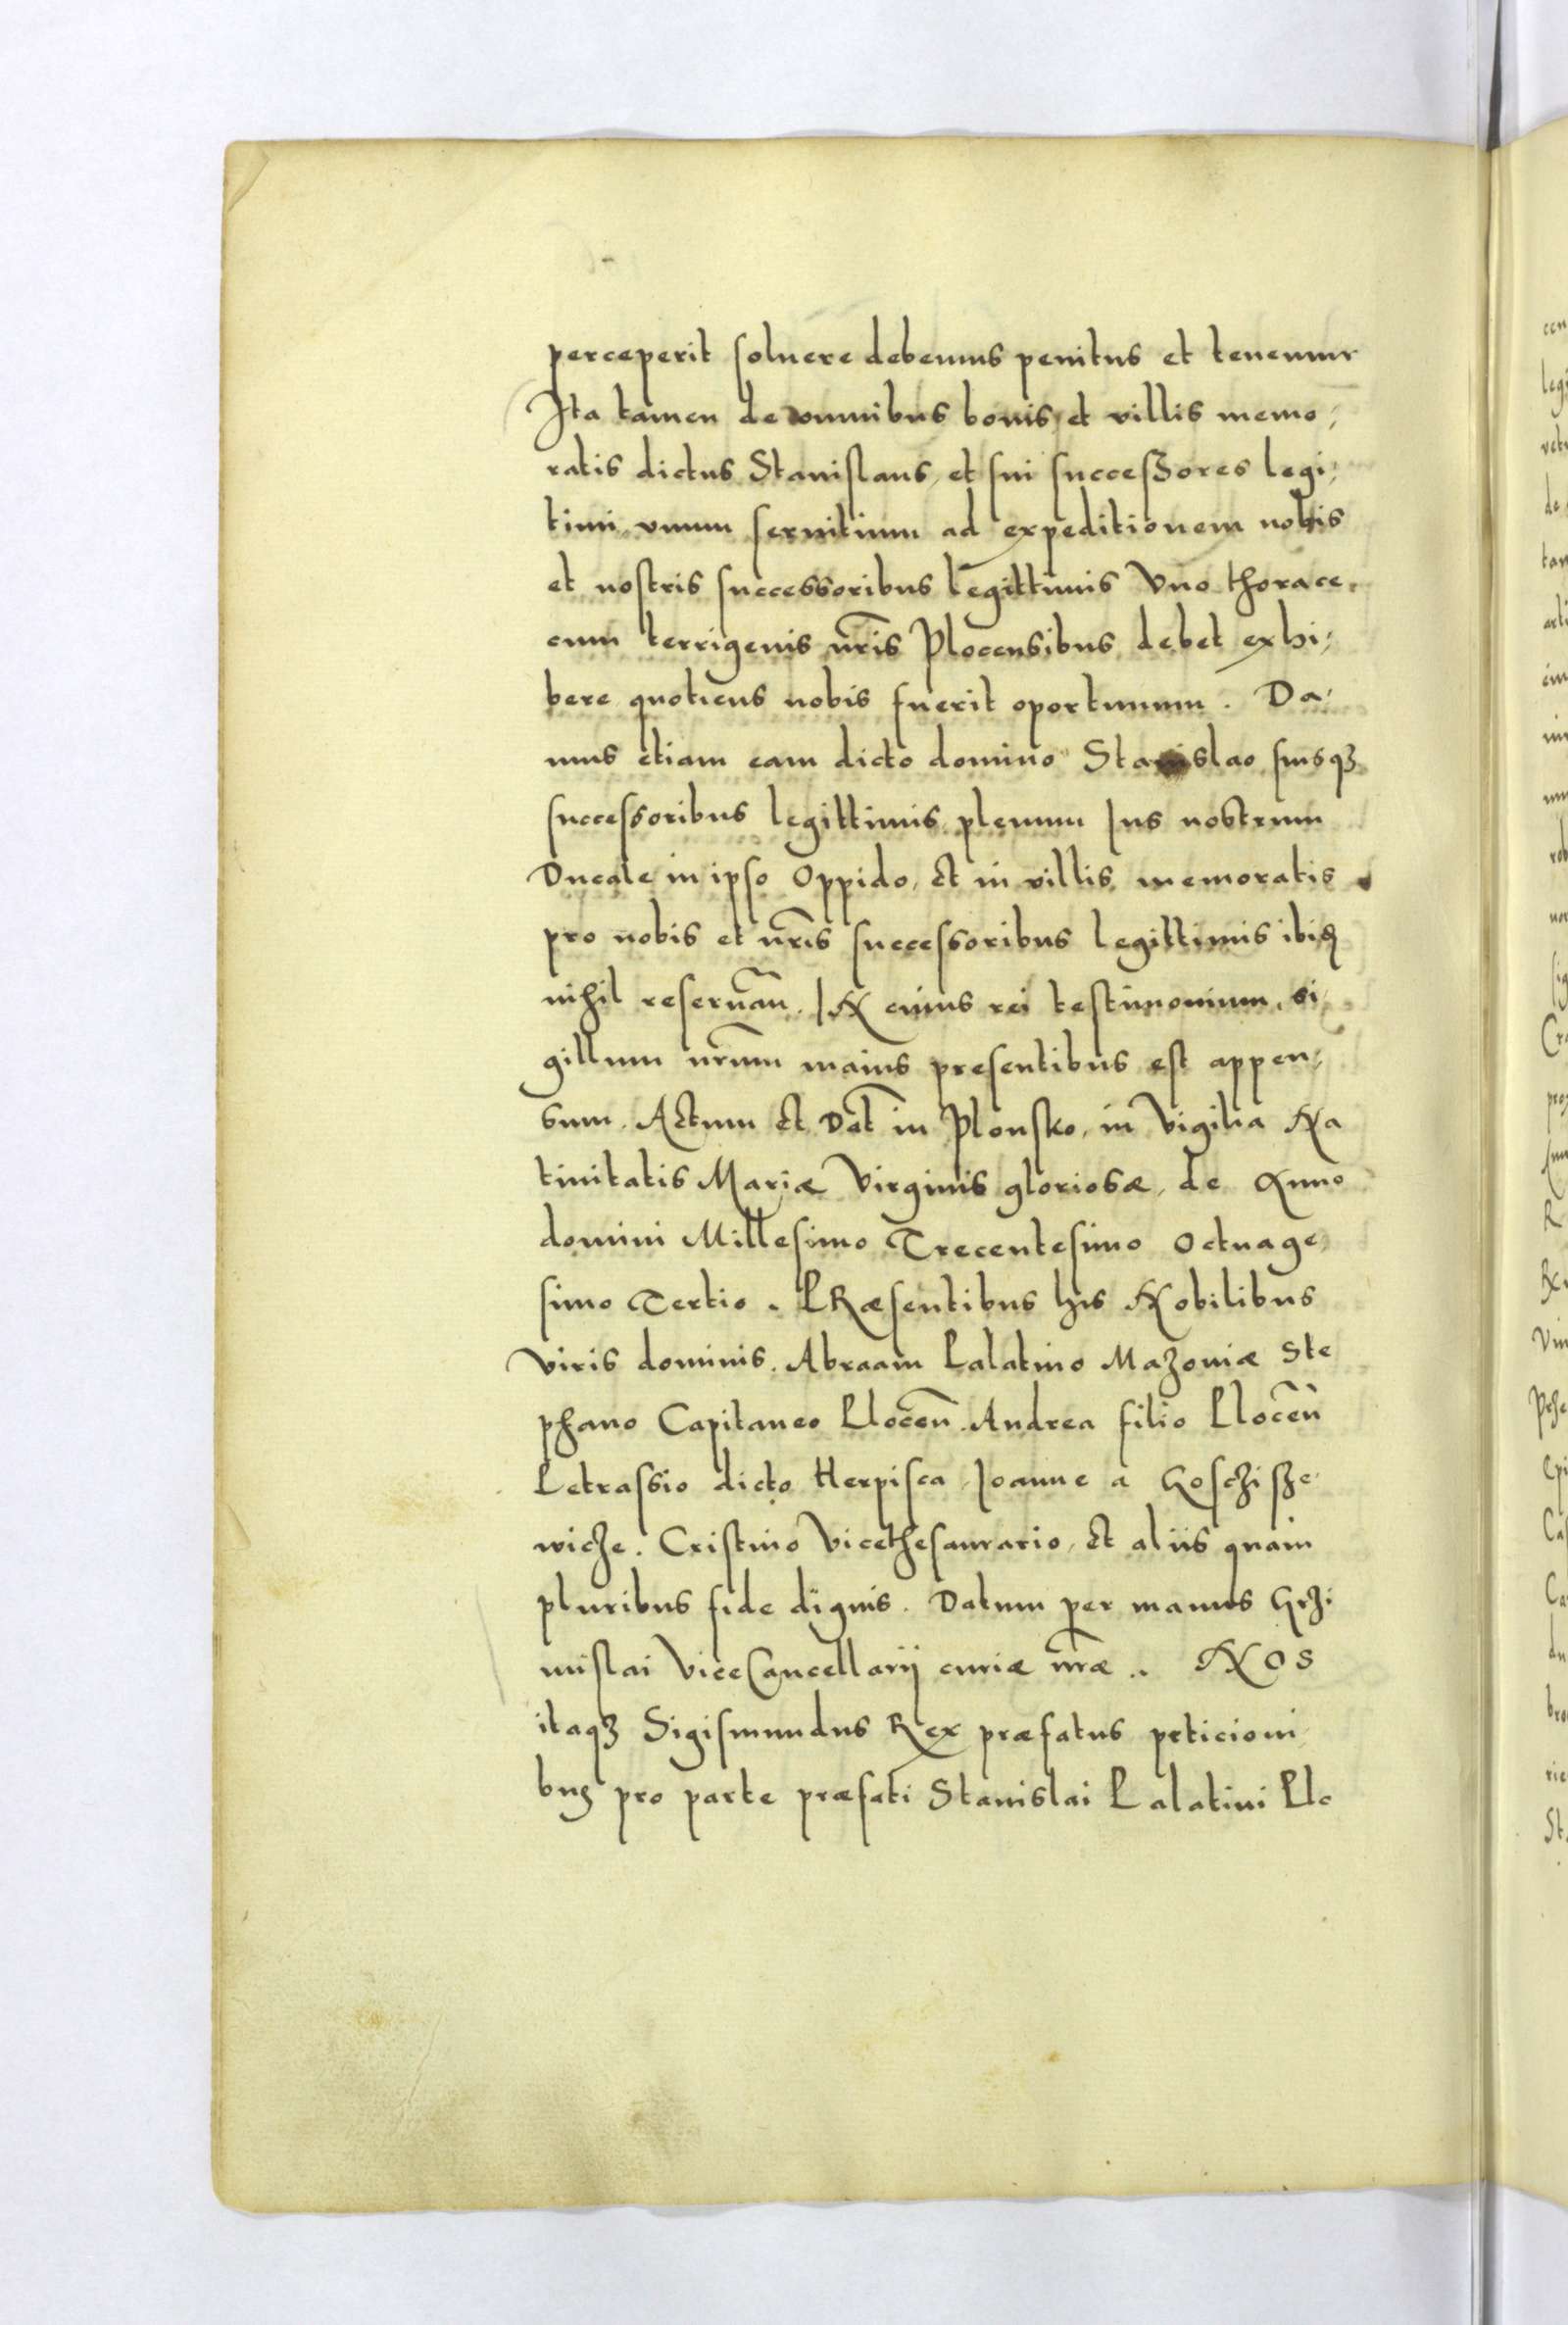 perceperit soluere debemus penitus et tenemur
Ita tamen de omnibus bonis et villis memo,
ratis dictus Stanislaus, et sui succeszores legi,
timi vnum seruitium ad expeditionem nobis
et nostris successoribus legittimis vno thorace
cum terrigenis nr̃is Plocensibus debet exhi,
bere quotiens nobis fuerit oportunum. Da
mus etiam eam dicto domino Stanislao suisqꝫ
successoribus legittimis plenum Ius nostrum
Ducale in ipso Oppido, et in villis memoratis
pro nobis et nr̃is successoribus legittimis ibiꝗ
nihil reseruañ. IN cuius rei testimonium si,
gillum nr̃um maius presentibus est appen,
sum. Actum et Dat̃ in Plonsko, in Vigilia Na
tiuitatis Mariæ Virginis gloriosæ, de Anno
domini Millesimo Trecentesimo Octuage
simo Tertio. PRæsentibus his Nobilibus
viris dominis. Abraam Palatino Mazouiæ Ste
phano Capitaneo Ploceñ. Andrea filio Ploceñ
Petrassio dicto Herpisca, Ioanne a Goschisze
wicze. Cristino Vicethesaurario, et aliis quam
pluribus fide dignis. Datum per manus Grzi
mislai ViceCancellarij curiæ nr̃æ. NOS
itaqꝫ Sigismundus Rex præfatus peticioni,
buꝫ pro parte præfati Stanislai Palatini Plo